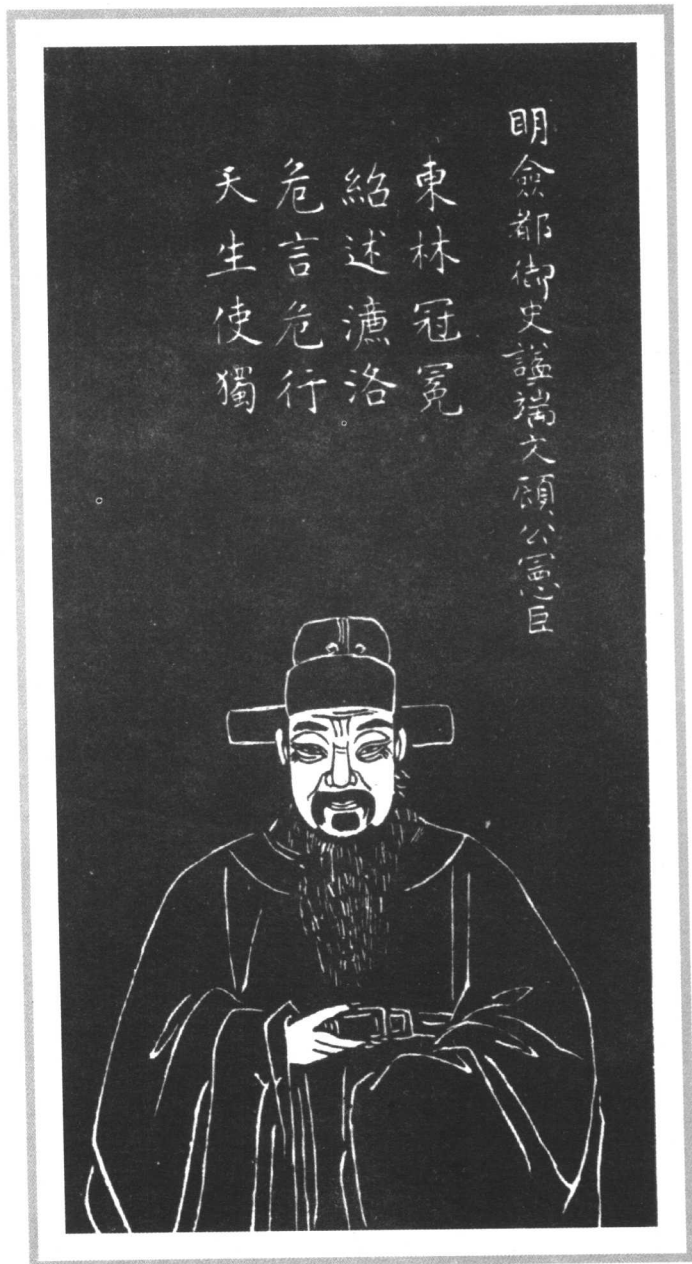 明僉都御史謚端文顧公憲臣
東林冠冕
紹述濂洛
危言危行
天生使獨